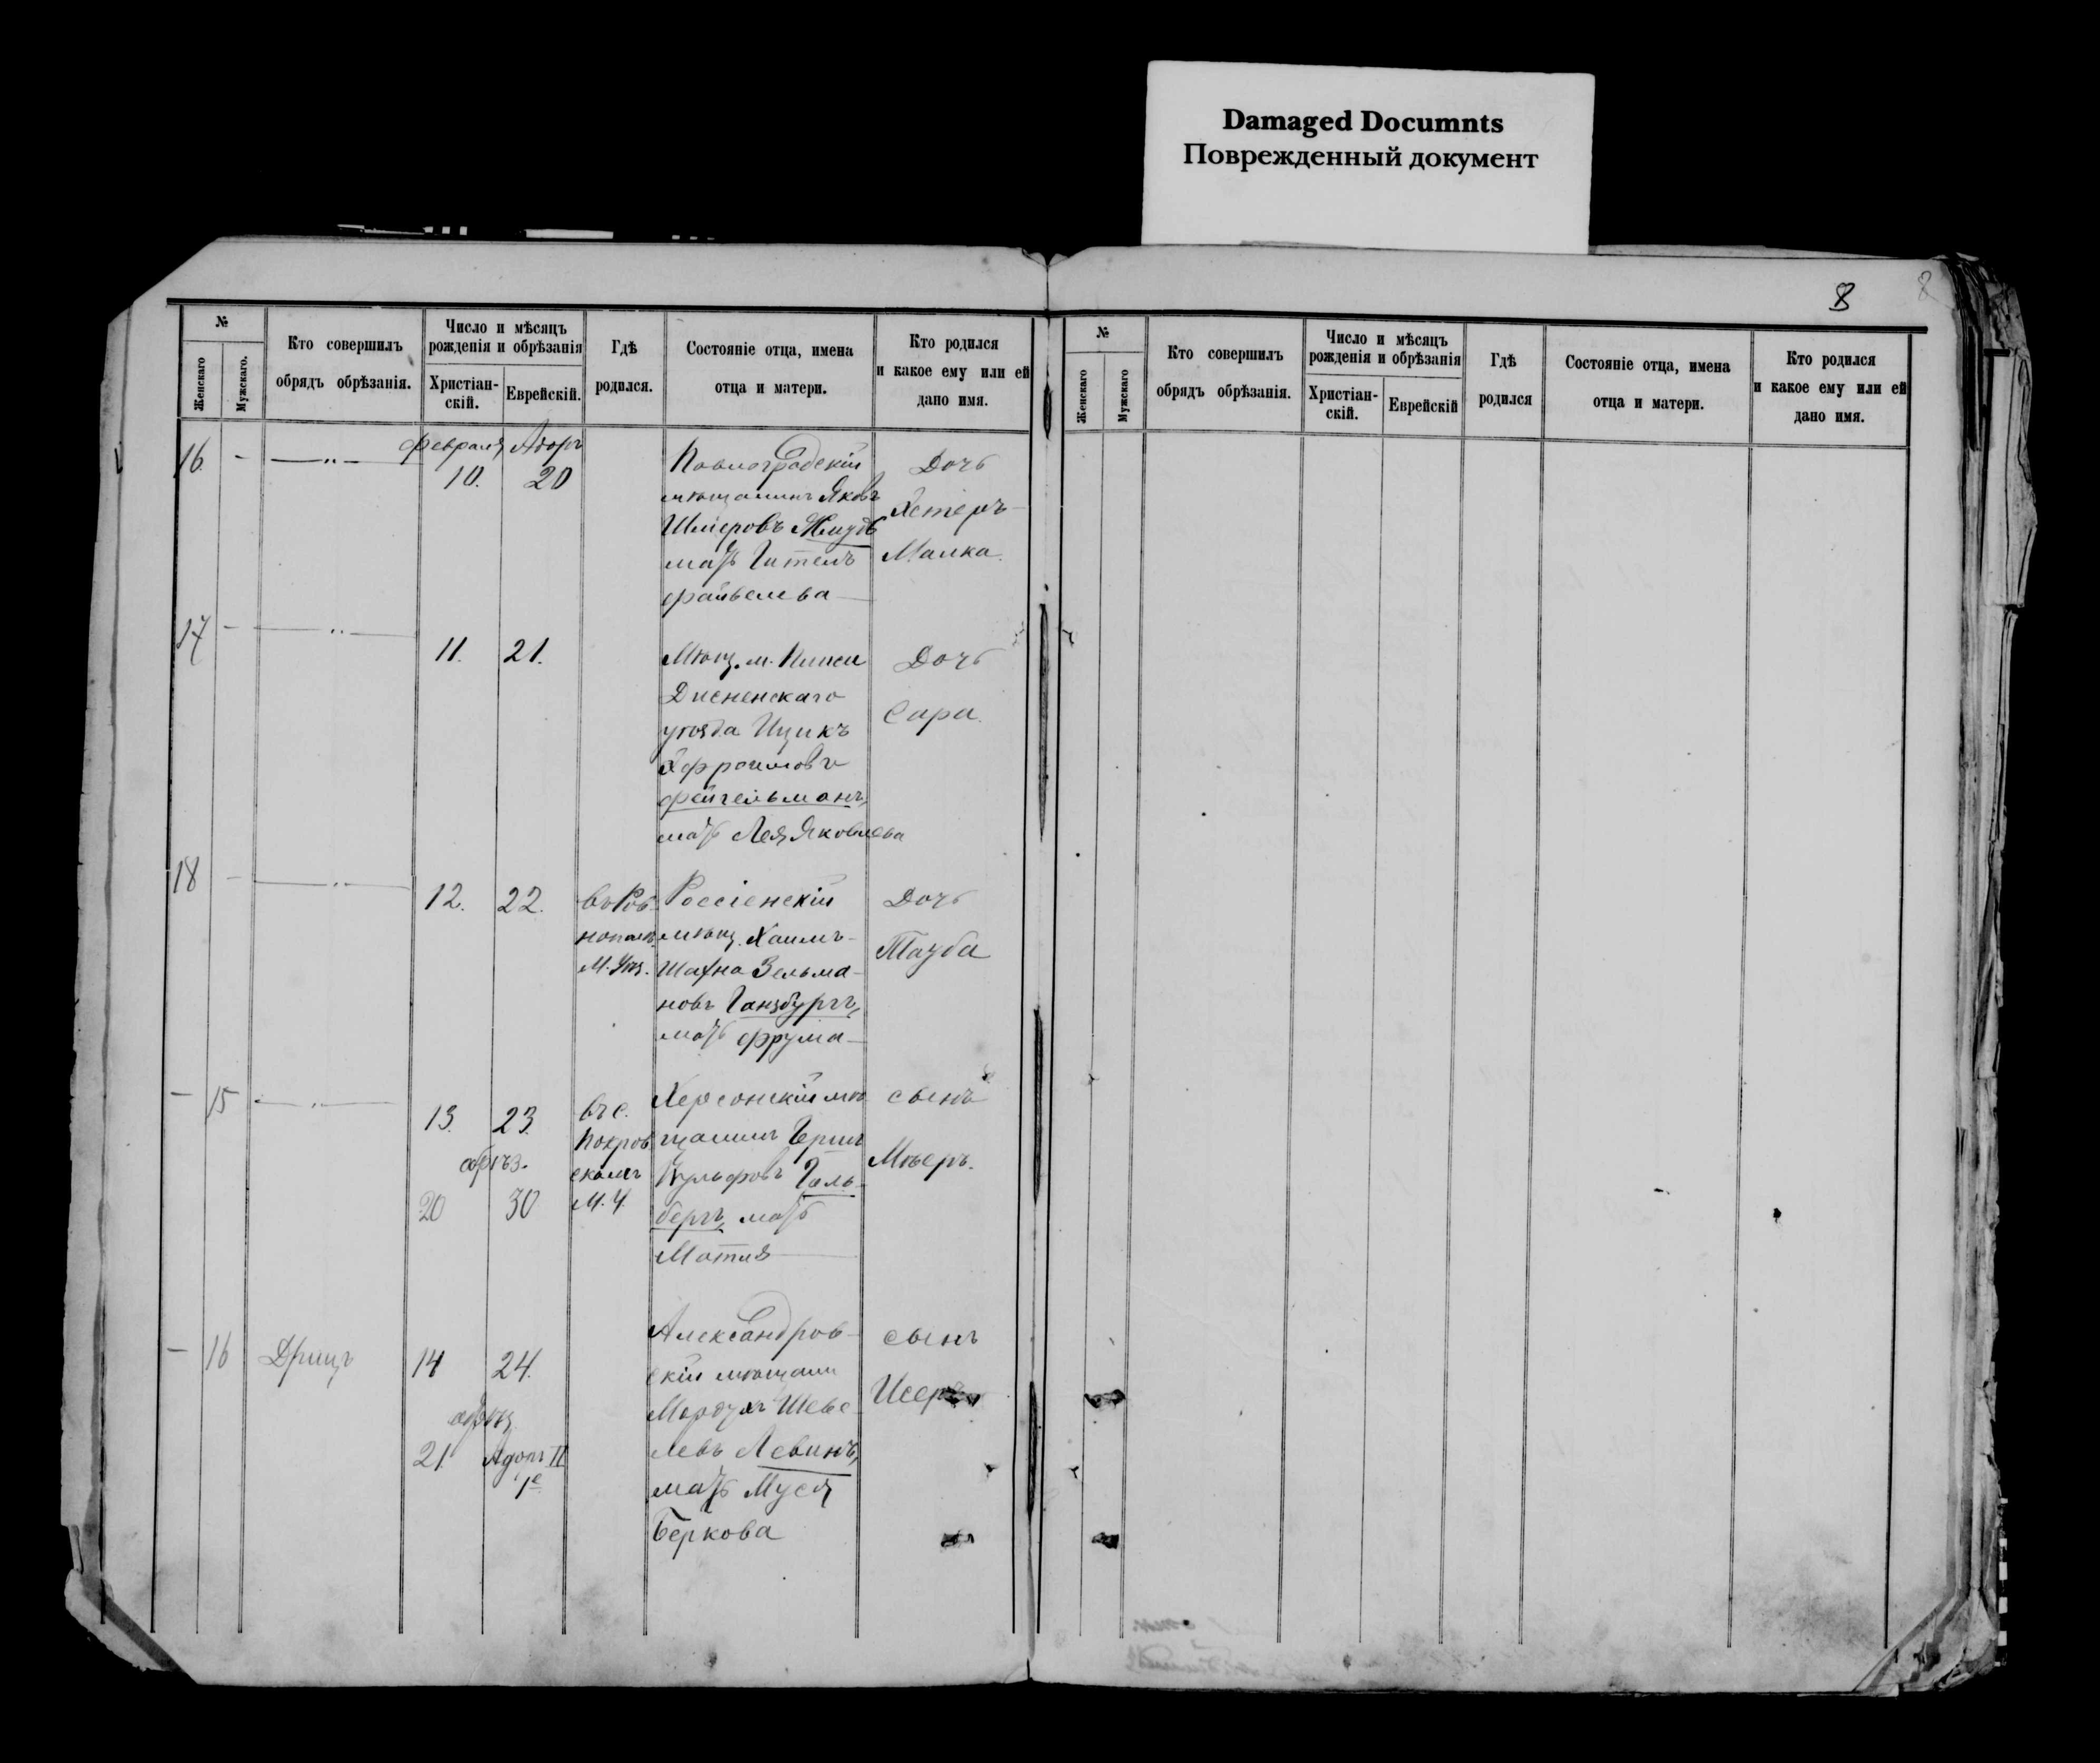 Damaged Documnts
Поврежденный документ
8
8
№
Женскаго
Мужскаго.
Кто совершилъ
обрядъ обрѣзанія.
Число и мѣсяцъ
рожденія и обрѣзанія
Христіан-
скій.
Еврейскій.
Гдѣ
родился.
Состояніе отца, имена
отца и матери.
Кто родился
и какое ему или ей
дано имя.
16. - —"—
Февраля Адаръ
10. 20
Павлоградскій
мѣщанинъ Яковъ
Шмеровъ Жмудь
мать Гитель
Файвелева—
Дочь
Эстеръ-
Малка.
17 - —"—
11. 21.
Мѣщ. м.
Дисненскаго
уѣзда Ицикъ
Эфроимовъ
Фейгельманъ,
мать Лея Яковлева
Дочь
Сара.
18 - —"—
12. 22.
въ Ров-
нополь
Россіенскій
мѣщ. Хаимъ-
Шахна Зельма-
новъ Ганзбургъ,
мать Фрума—
Дочь
Тауба
— 15 —"—
13. 23.
обрѣз.
20 30
въ с.
Покров
скомъ
М. У.
Херсонскій мѣ
щанинъ Герш
Вульфовъ Галь-
бергъ, мать
Матля—
сынъ
Мѣеръ.
— 16 Дрицъ
14 24.
обрѣз.
21 Адаръ II
1е
Александров-
скій мѣщани
Мордухъ Шеве-
левъ Левинъ,
мать Муся
Беркова
сынъ
Исеръ
№
Женскаго
Мужскаго
Кто совершилъ
обрядъ обрѣзанія.
Число и мѣсяцъ
рожденія и обрѣзанія
Христіан-
скій.
Еврейскій
Гдѣ
родился
Состояніе отца, имена
отца и матери.
Кто родился
и какое ему или ей
дано имя.